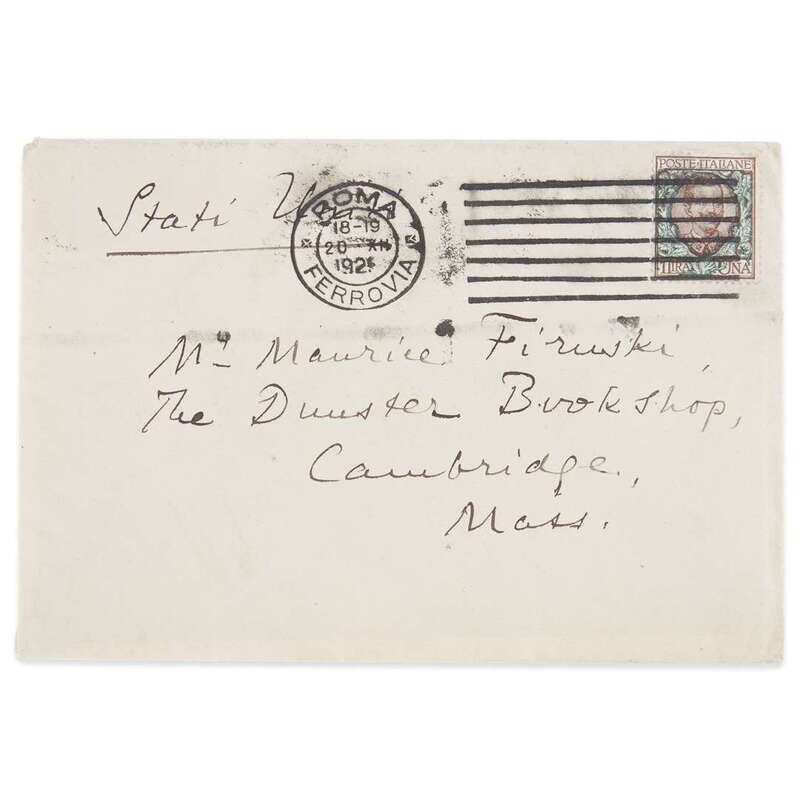 Stati Uniti
ROMA
18-19
20 XII
FERROVIA
POSTE ITALIANE
LIRA UNA
Mr. Maurice Firuski,
The Dunster Bookshop,
Cambridge,
Mass.